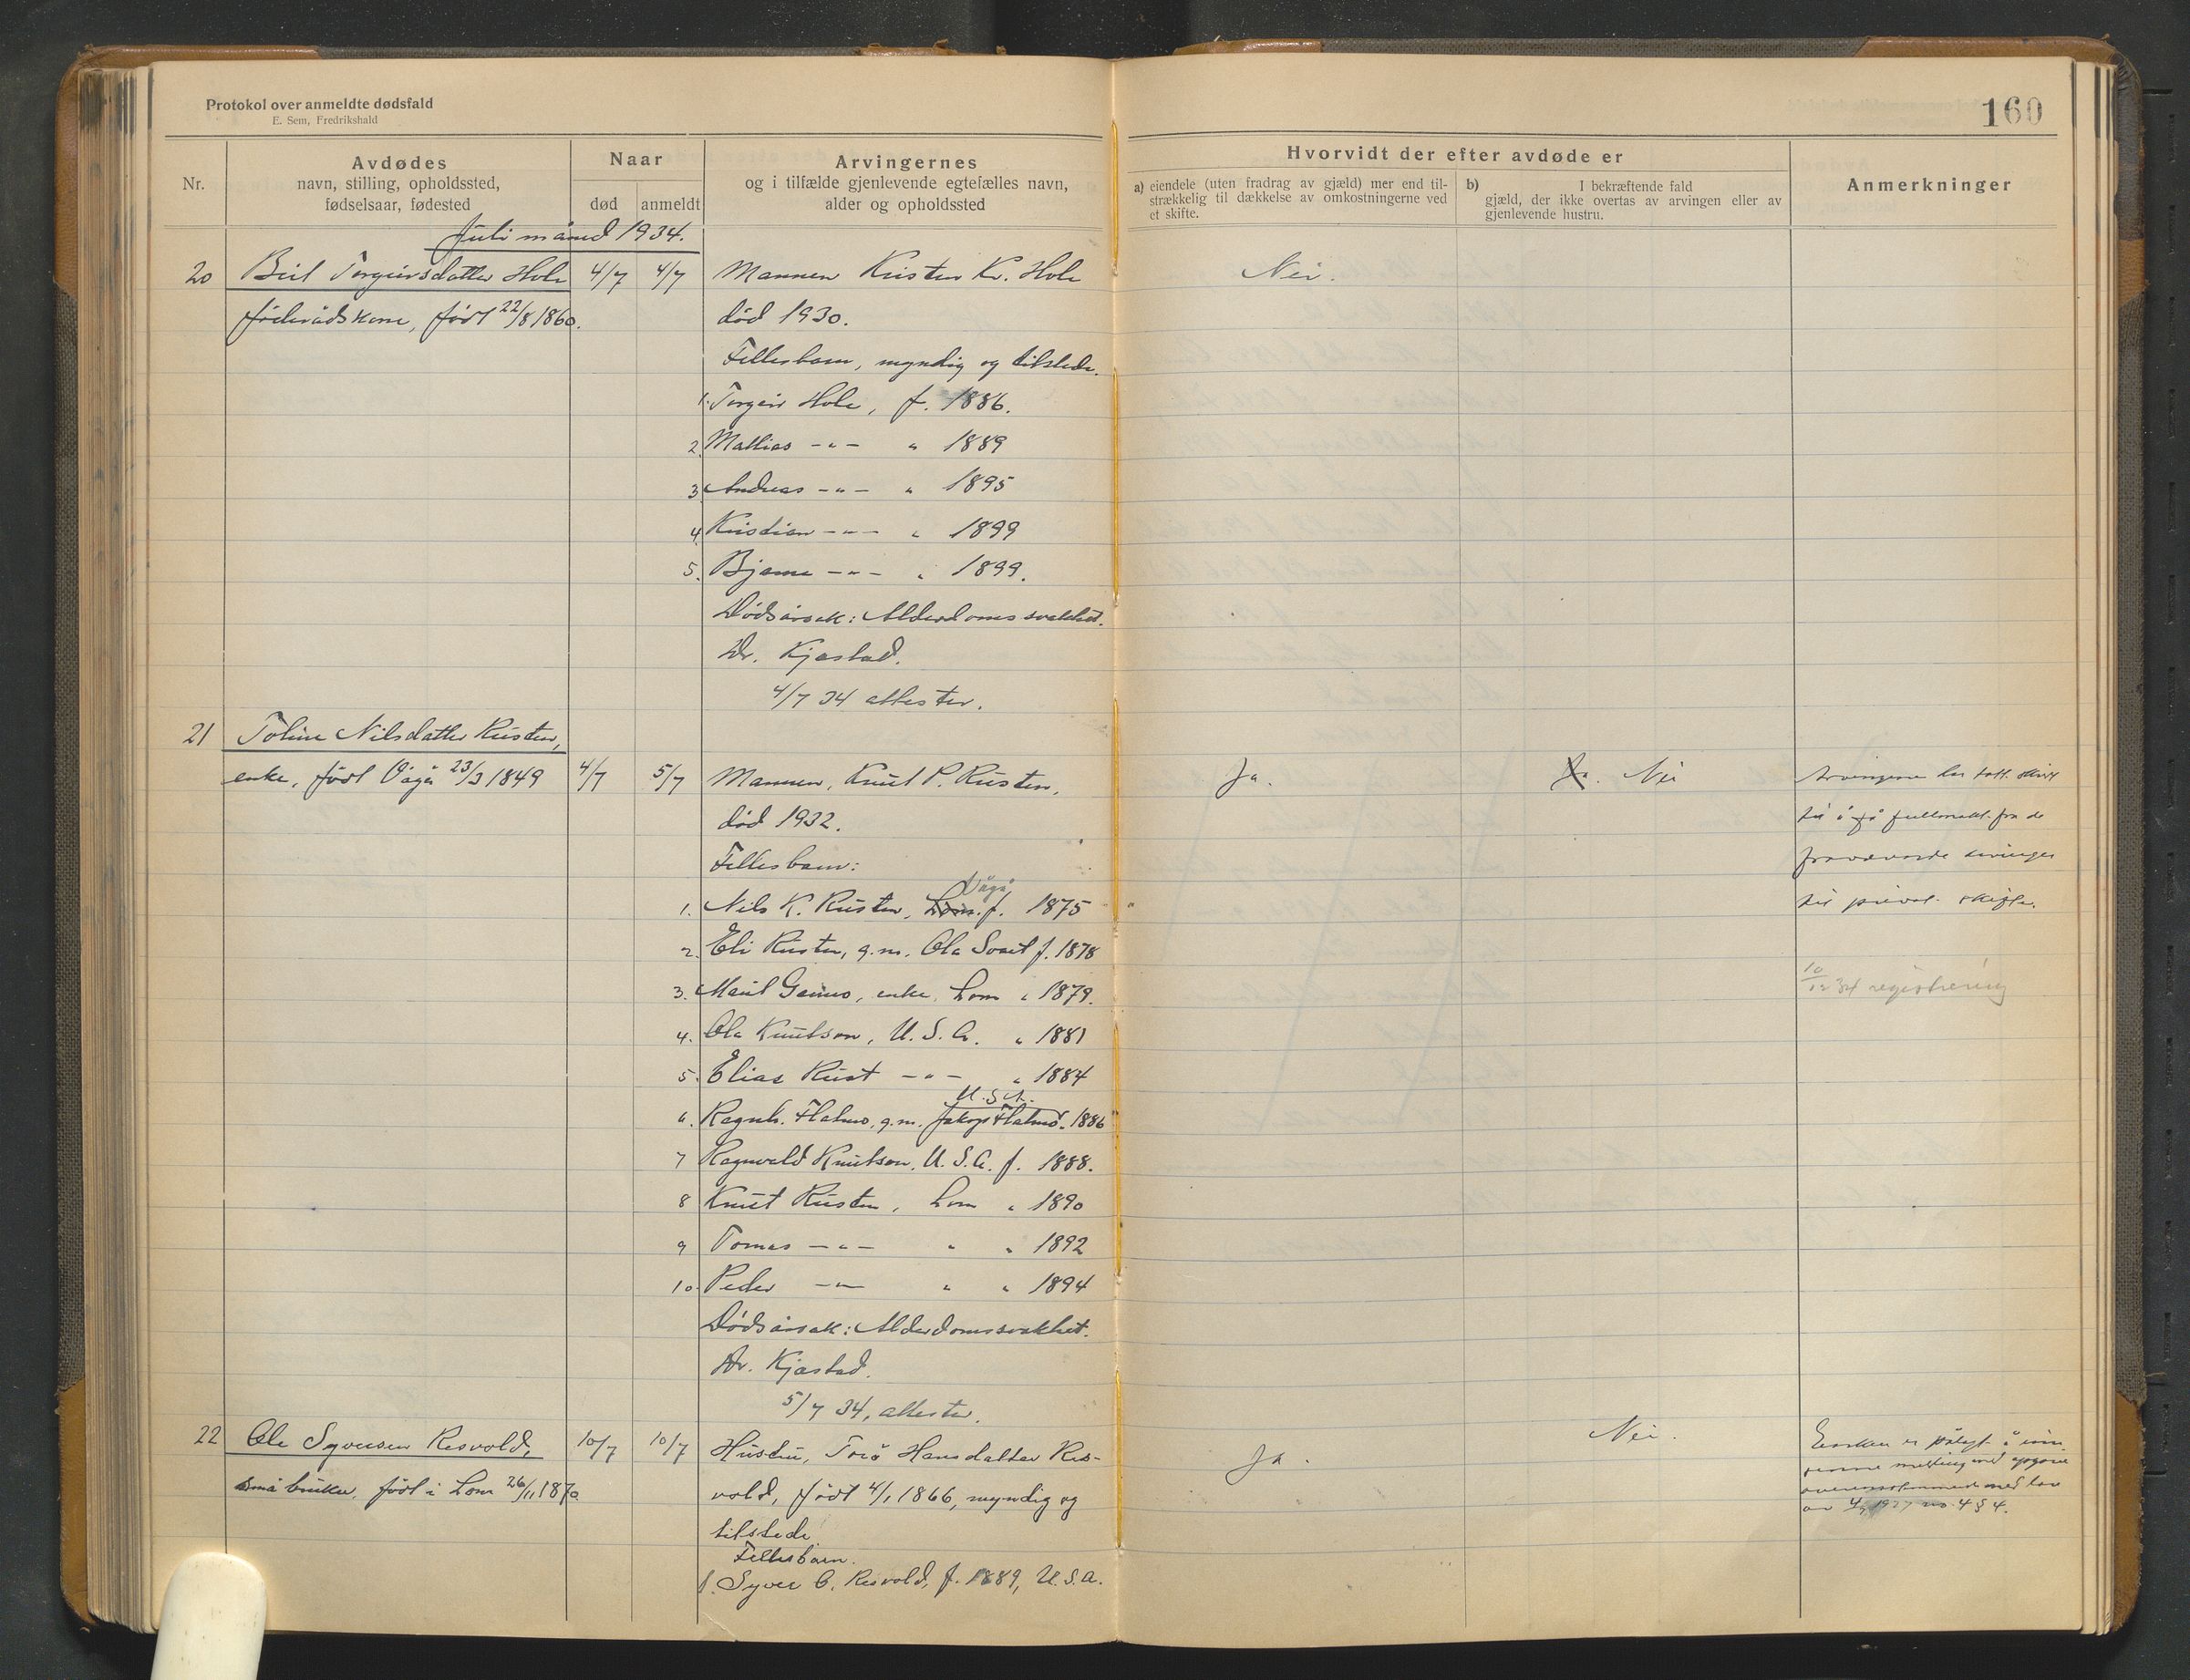 Protokol over anmeldte dødsfald
E. Sem, Fredrikshald
160
Nr.
Avdødes
navn, stilling, opholdssted,
fødselsaar, fødested
Naar
død
anmeldt
Arvingernes
og i tilfælde gjenlevende egtefælles navn,
alder og opholdssted
Hvorvidt der efter avdøde er
a) eiendele (uten fradrag av gjæld) mer end til-
strækkelig til dækkelse av omkostningerne ved
et skifte.
b) I bekræftende fald
gjæld, der ikke overtas av arvingen eller av
gjenlevende hustru.
Anmerkninger
Juli måned 1934.
20 Brit Torgeirsdatter Hole 4/7 4/7 Mannen Kristen Kr. Hole Nei.
føderådskone, født 22/8 1860. død 1930.
Fellesbarn, myndig og tilstede.
1. Torgeir Hole, f. 1886.
2. Mathias -"- " 1889
3. Andreas -"- " 1895
4. Kristian -"- " 1899
5. Bjarne -"- " 1899.
Dødsårsak: Alderdomssvakhet.
Dr. Kjæstad.
4/7 34 attester.
21 Toline Nilsdatter Rusten,
enke, født Vågå 23/3 1849 4/7 5/7 Mannen, Knut P. Rusten, Ja. Ja. Nei Arvingene har tatt skritt
død 1932. til å få fullmakt fra de
Fellesbarn: fraværende arvinger
Vågå
1. Nils K. Rusten, Lom. f. 1875 til privat skifte.
2. Eli Rusten, g.m. Ola f. 1878
3. Marit Geimo, enke, Lom " 1879. 10/12 34 registrering
4. Ola Knutson, U.S.A. " 1881
5. Elias Rust -"- " 1884
U.S.A.
6. Ragnh. Flatmo, g.m. Jakop Flatmo. 1886
7 Ragnvald Knutson, U.S.A. f. 1888.
8 Knut Rusten, Lom " 1890
9 Tomas -"- " " 1892
10 Peder -"- " " 1894
Dødsårsak: Alderdomssvakhet.
Dr. Kjæstad.
5/7 34, attester.
22 Ole Syversen Resvold, 10/7 10/7 Hustru, Torø Hansdatter Res- Ja. Nei. Enken er pålagt å inn-
småbruker, født i Lom 26/11 1870 vold, født 4/1 1866, myndig og melding med opgave
tilstede. overensstemmende med lov
Fellesbarn. av 1927 no. 4 § 4.
1. Syver O. Resvold, f. 1889, U.S.A.